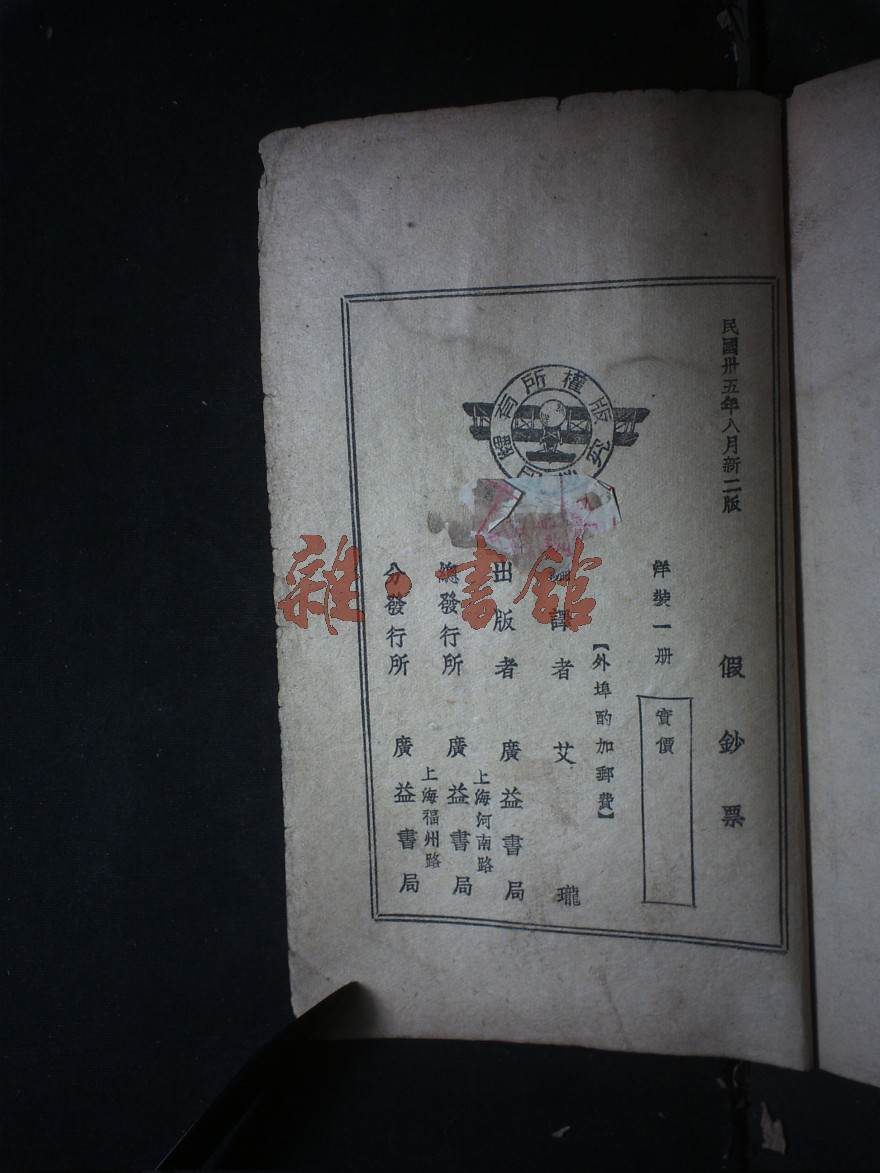 民國卅五年八月新二版
假鈔票
洋裝一册
實價
【外埠酌加郵費】
編譯者 艾瓏
出版者 廣益書局
上海河南路
總發行所 廣益書局
上海福州路
分發行所 廣益書局
版權所有
究
雜·書館